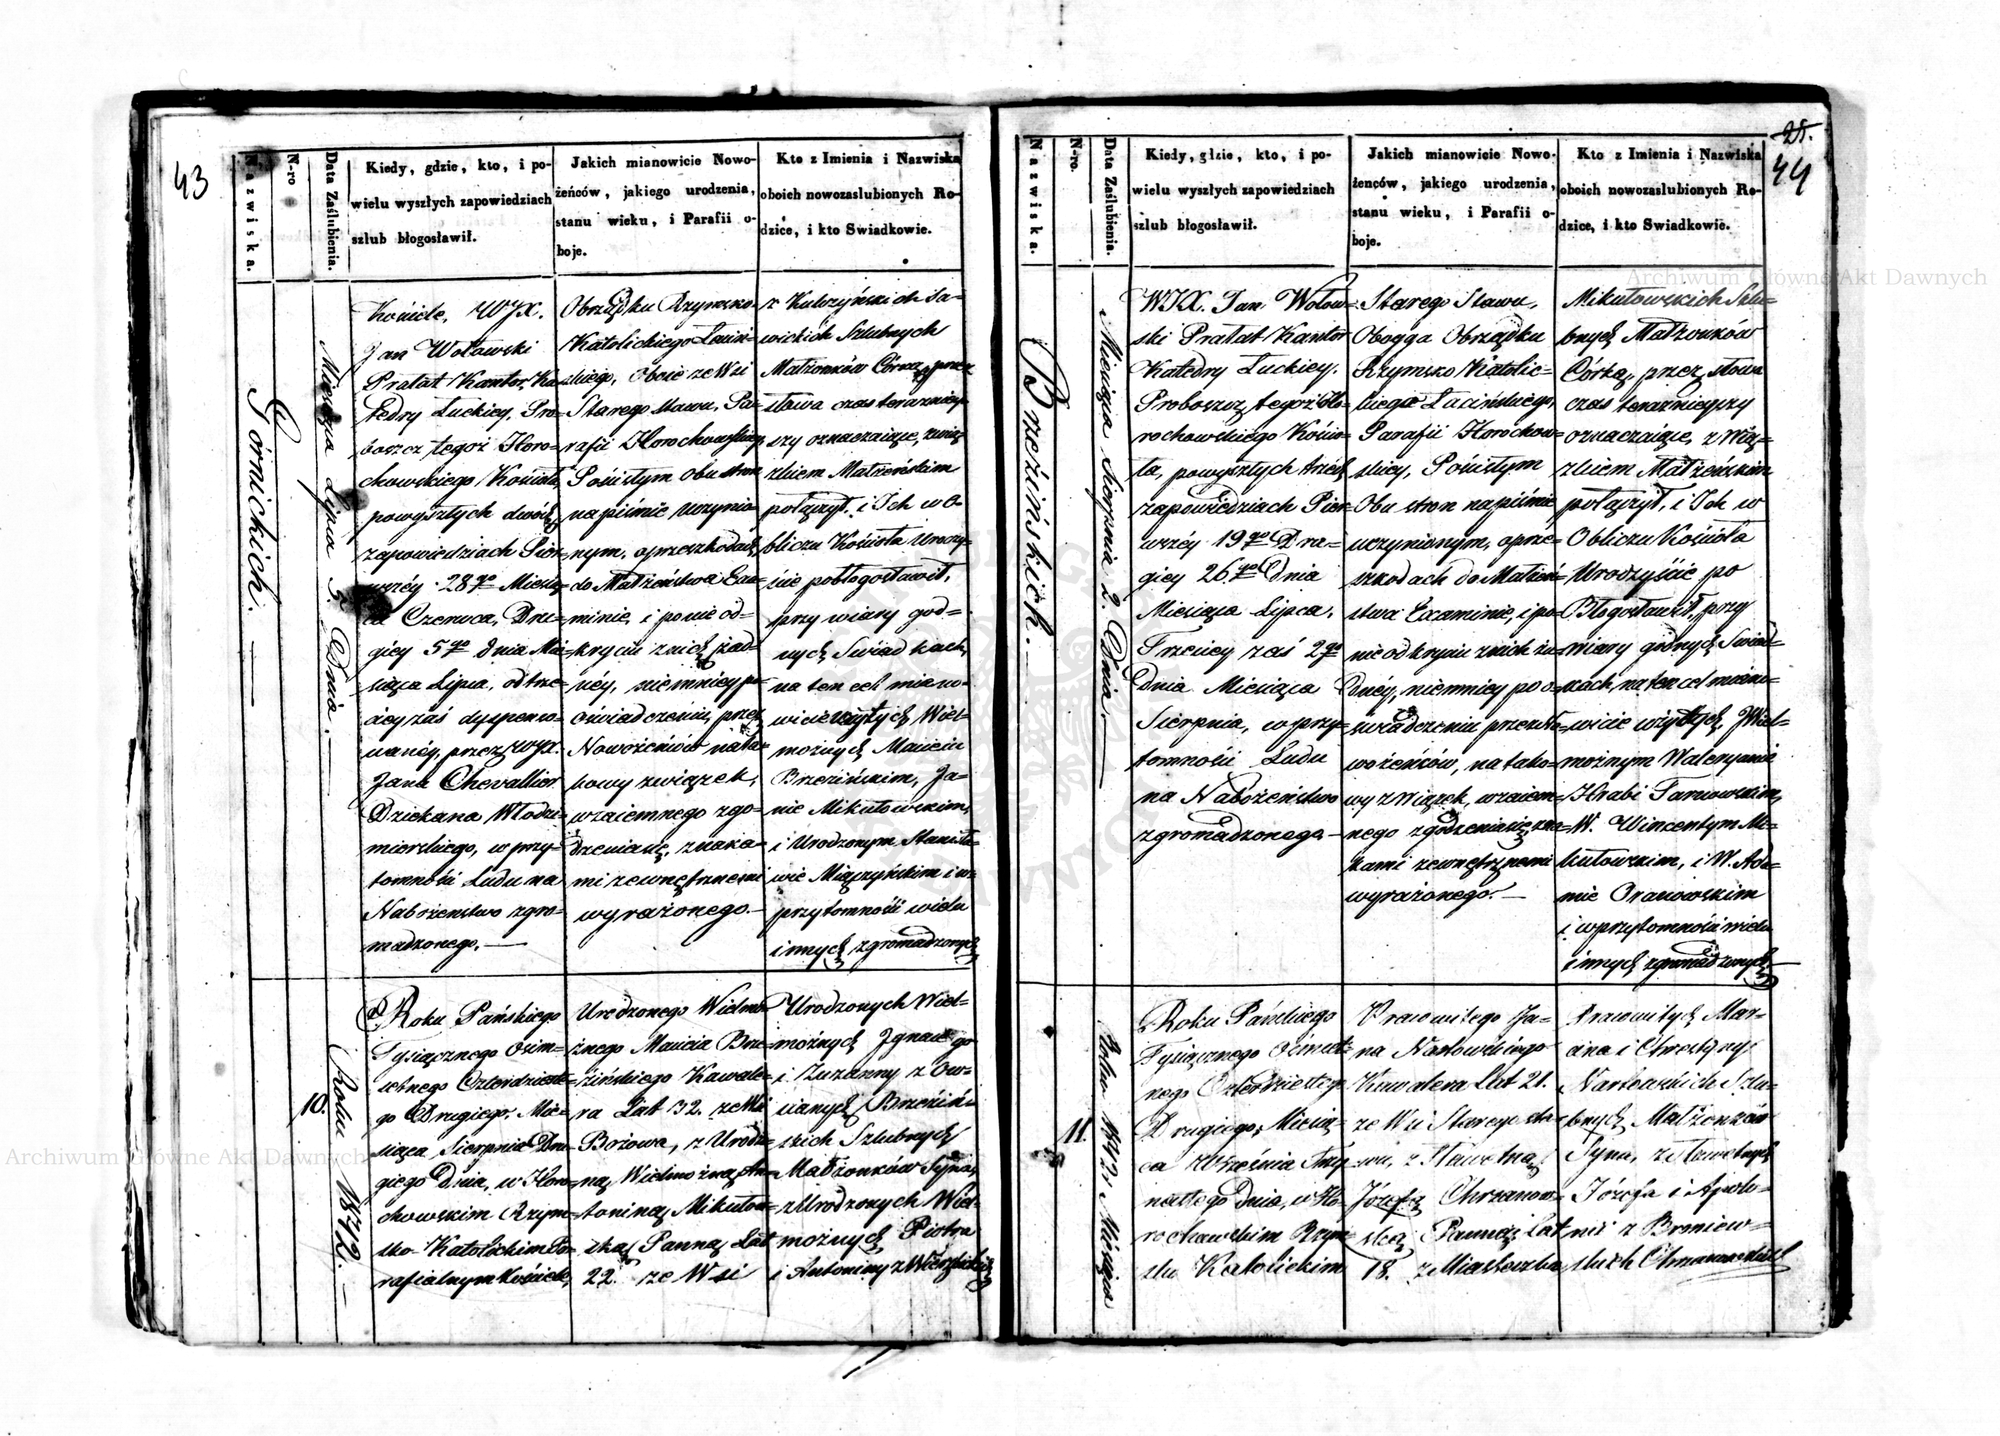 43
Nazwiska.
N-ro
Data Zaślubienia.
Kiedy, gdzie, kto, i po-
wielu wyszłych zapowiedziach
szlub błogosławił.
Jakich mianowicie Nowo-
żeńców, jakiego urodzenia,
stanu wieku, i Parafii o-
boje.
Kto z Imienia i Nazwiska
oboich nowozaslubionych Ro-
dzice, i kto Swiadkowie.
Górnickich.
Miesiąca Lipca 5. Dnia.
Kościele, WJX.
Jan Wołowski
Prałat Kantor Ka-
tedry Łuckiey, Pro-
boszcz tegoż Horo-
chowskiego Kościoła
powyszłych dwóch
zapowiedziach Pier-
wszéy 28go Miesią-
ca Czerwca, Dru-
giéy 5go dnia Mie-
siąca Lipca, od trze-
ciéy zaś dyspenso-
wanéy, przez WJX.
Jana Chevallier
Dziekana Włodzi-
mierskiego, w przy-
tomności Ludu na
Nabożenstwo zgro-
madzonego.
Obrządku Rzymsko
Katolickiego Łaciń-
skiego, oboie ze Wsi
Starego Stawu, Pa-
rafii Horochowskiey
Poście tym obu stron
na piśmie uczynio-
nym, o przeszkodach
do Małżeństwa Exa-
minie, i po nie od-
kryciu z nich żad-
néy, niemniey po
oświadczeniu, przez
Nowożeńców na ta-
kowy związek,
wzaiemnego zgo-
dzenia się, znaka-
mi zewnętrznemi
wyrażonego.
z Kulczyńskich Sa-
wickich Szlubnych
Małżonków Córką, przez
słowa czas teraźniey-
szy oznaczaiące, związ-
kiem Małżeńskim
połączył, i Ich w O-
bliczu Kościoła Uroczy-
ście pobłogosławił,
przy wiary god-
nych Świadkach,
na ten cel miano-
wicie użytych, Wiel-
możnych Macieiu
Brzezińskim, Ja-
nie Mikułowskim,
i Urodzonym Stanisła-
wie Miączyńskim i w
przytomności wielu
innych zgromadzonych
10.
Roku 1842.
Roku Pańskiego
Tysiącznego Osim-
setnego Czterdzieste-
go Drugiego, Mie-
siąca Sierpnia Dru-
giego Dnia, w Horo-
chowskim Rzym-
sko-Katolickim Pa-
rafialnym Kościele,
Urodzonego Wielmo-
żnego Macieia Brze-
zińskiego Kawale-
ra Lat 32. ze Wsi
Bożowa, z Urodzo-
ną Wielmożną An-
toniną Mikułow-
ską Panną Lat
22. ze Wsi
Urodzonych Wiel-
możnych Ignacego
i Zuzanny z
Brzeziń-
skich Szlubnych
Małżonków Syna,
z Urodzonych Wiel-
możnych Piotra
i Antoniny z
25.
44
Nazwiska.
N-ro.
Data Zaślubienia.
Kiedy, gdzie, kto, i po-
wielu wyszłych zapowiedziach
szlub błogosławił.
Jakich mianowicie Nowo-
żeńców, jakiego urodzenia,
stanu wieku, i Parafii o-
boje.
Kto z Imienia i Nazwiska
oboich nowozaslubionych Ro-
dzice, i kto Swiadkowie.
Brzezińskich.
Miesiąca Sierpnia 2. Dnia.
WJX. Jan Wołow-
ski Prałat Kantor
Katedry Łuckiey.
Proboszcz tegoż Ho-
rochowskiego Kościo-
ła, powyszłych trzech
zapowiedziach Pier-
wszéy 19go Dru-
giey 26go Dnia
Miesiąca Lipca,
Trzeciey zaś 2go
Dnia Miesiąca
Sierpnia, w przy-
tomności Ludu
na Nabożeństwo
zgromadzonego.
Starego Stawu,
Oboyga Obrządku
Rzymsko Katolic-
kiego Łacińskiego,
Parafii Horochow-
skiey, Poście tym
Obu stron na piśmie
uczynionym, o prze-
szkodach do Małżeń-
stwa Examinie, i po
nie odkryciu z nich ża-
dnéy, niemniey po o-
świadczeniu przez No-
wożeńców, na tako-
wy związek, wzaiem-
nego zgodzenia się zna-
kami zewnętrznemi
wyrażonego.
Mikułowskich Szlu-
bnych Małżonków
Córką, przez słowa
czas teraźnieyszy
oznaczaiące, związ-
kiem Małżeńskim
połączył, i Ich w
Obliczu Kościoła
Uroczyście po
Błogosławił, przy
wiary godnych Świad-
kach, na ten cel miano-
wicie użytych, JWiel-
możnym Waleryanie
Hrabi Tarnowskim,
W. Wincentym Mi-
kułowskim, i W. Ada-
mie Oranowskim
i w przytomności wielu
innych zgromadzonych
11.
Roku 1842. Miesiąca
Roku Pańskiego
Tysiącznego Ośmset-
nego Czterdziestego
Drugiego, Miesią-
ca Września Trzy-
nastego Dnia, w Ho-
rochowskim Rzym-
sko Katolickim
Pracowitego Ja-
na Narłowskiego
Kawalera Lat 21.
ze Wsi Starego Sta-
wu, z Sławetną
Józefą Chrzanow-
ską Panną, Lat
18. z Miasteczka
Pracowitych Mar-
cina i
Narłowskich Szlu-
bnych Małżonków
Syna, z Sławetnych
Józefa i Apolo-
nii z Broniew-
skich Chrzanowskich
Archiwum Główne Akt Dawnych
Archiwum Główne Akt Dawnych